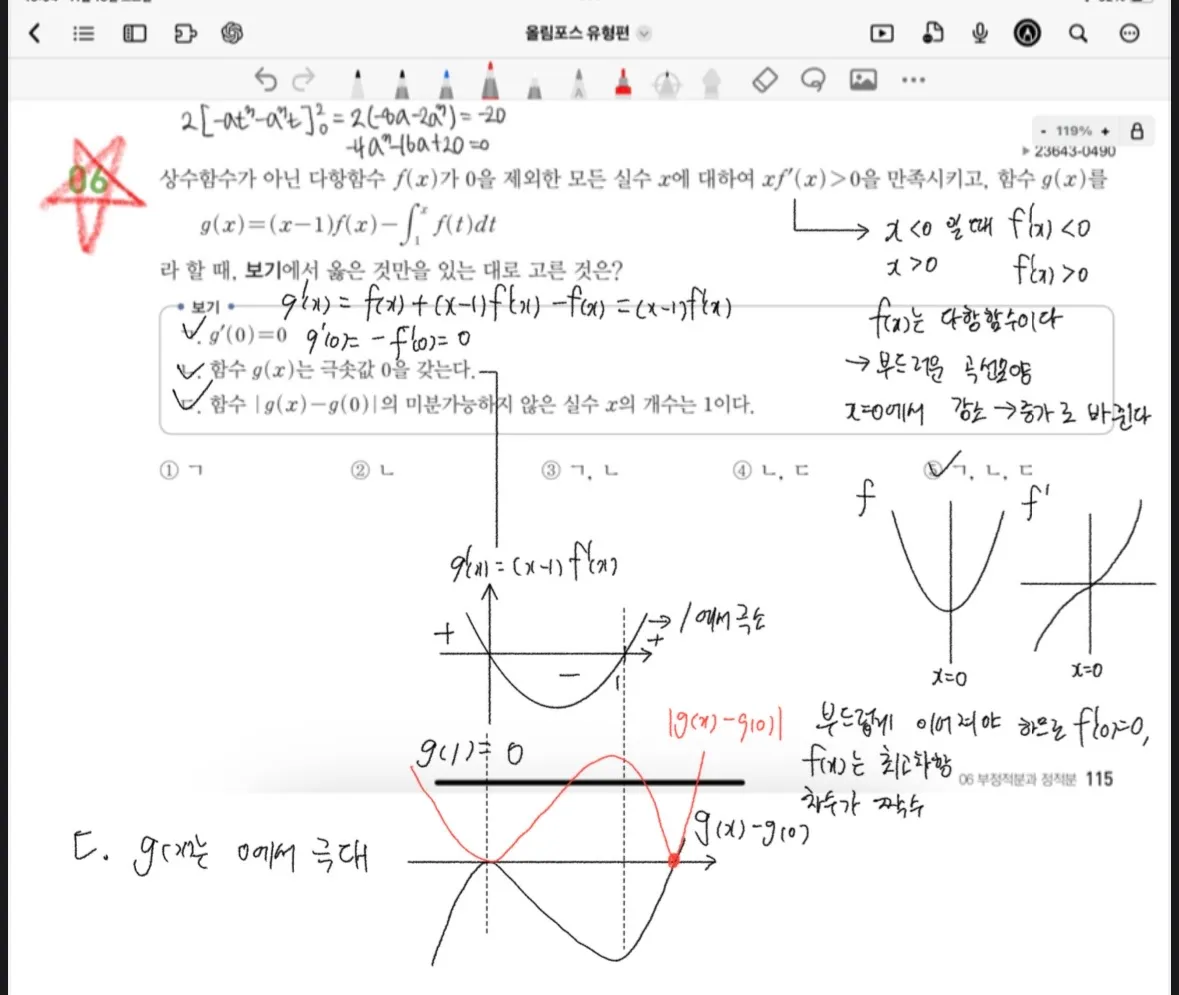 올림포스 유형편
2[-at²-a²t]²₀ = 2(-8a-2a²) = -20
-4a²-16a+20=0
- 119% +
▶ 23643-0490
06
상수함수가 아닌 다항함수 f(x)가 0을 제외한 모든 실수 x에 대하여 xf′(x)>0을 만족시키고, 함수 g(x)를
g(x)=(x-1)f(x)-∫₁ˣ f(t)dt
x<0 일 때 f′(x)<0
x>0 f′(x)>0
라 할 때, 보기에서 옳은 것만을 있는 대로 고른 것은?
보기
g′(x) = f(x)+(x-1)f′(x)-f(x) = (x-1)f′(x)
f(x)는 다항함수이다
g′(0)=0 g′(0)= -f′(0)= 0
→ 부드러운 곡선모양
함수 g(x)는 극솟값 0을 갖는다.
함수 |g(x)-g(0)|의 미분가능하지 않은 실수 x의 개수는 1이다.
x=0에서 감소→증가로 바뀐다
① ㄱ ② ㄴ ③ ㄱ, ㄴ ④ ㄴ, ㄷ ⑤ ㄱ, ㄴ, ㄷ
f f′
g′(x) = (x-1)f′(x)
+ - 1 + → 1에서 극소
x=0 x=0
|g(x)-g(0)|
부드럽게 이어져야 하므로 f′(0)=0,
g(1)= 0
f(x)는 최고차항
차수가 짝수
06 부정적분과 정적분 115
g(x)-g(0)
ㄷ. g(x)는 0에서 극대